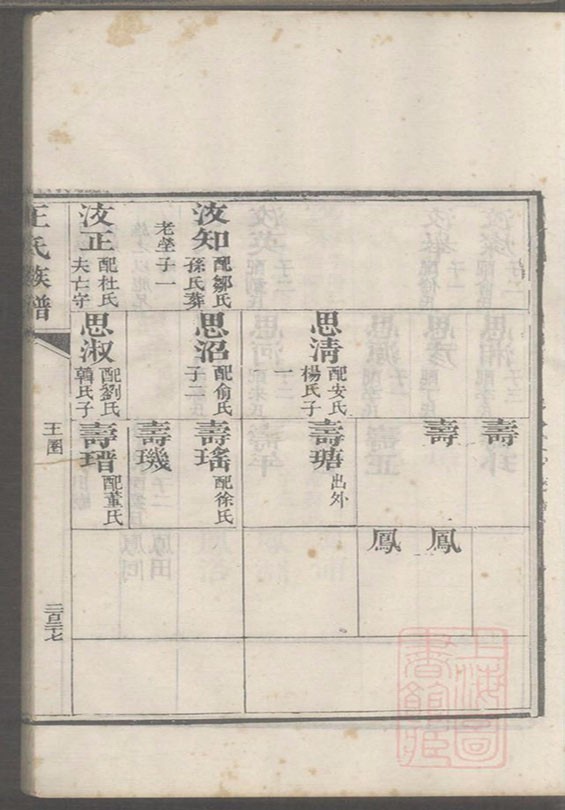 壽
壽
鳳
鳳
思清 配安氏
楊氏子
一
壽瑭 出外
汝知 配鄒氏
孫氏葬
老塋子一
思沼 配俞氏
子二
壽瑤 配徐氏
壽璣
汝正 配杜氏
夫亡守
思淑 配劉氏
韓氏子
壽瑨 配董氏
王氏族譜
王圈
二百三七
上海圖書館藏